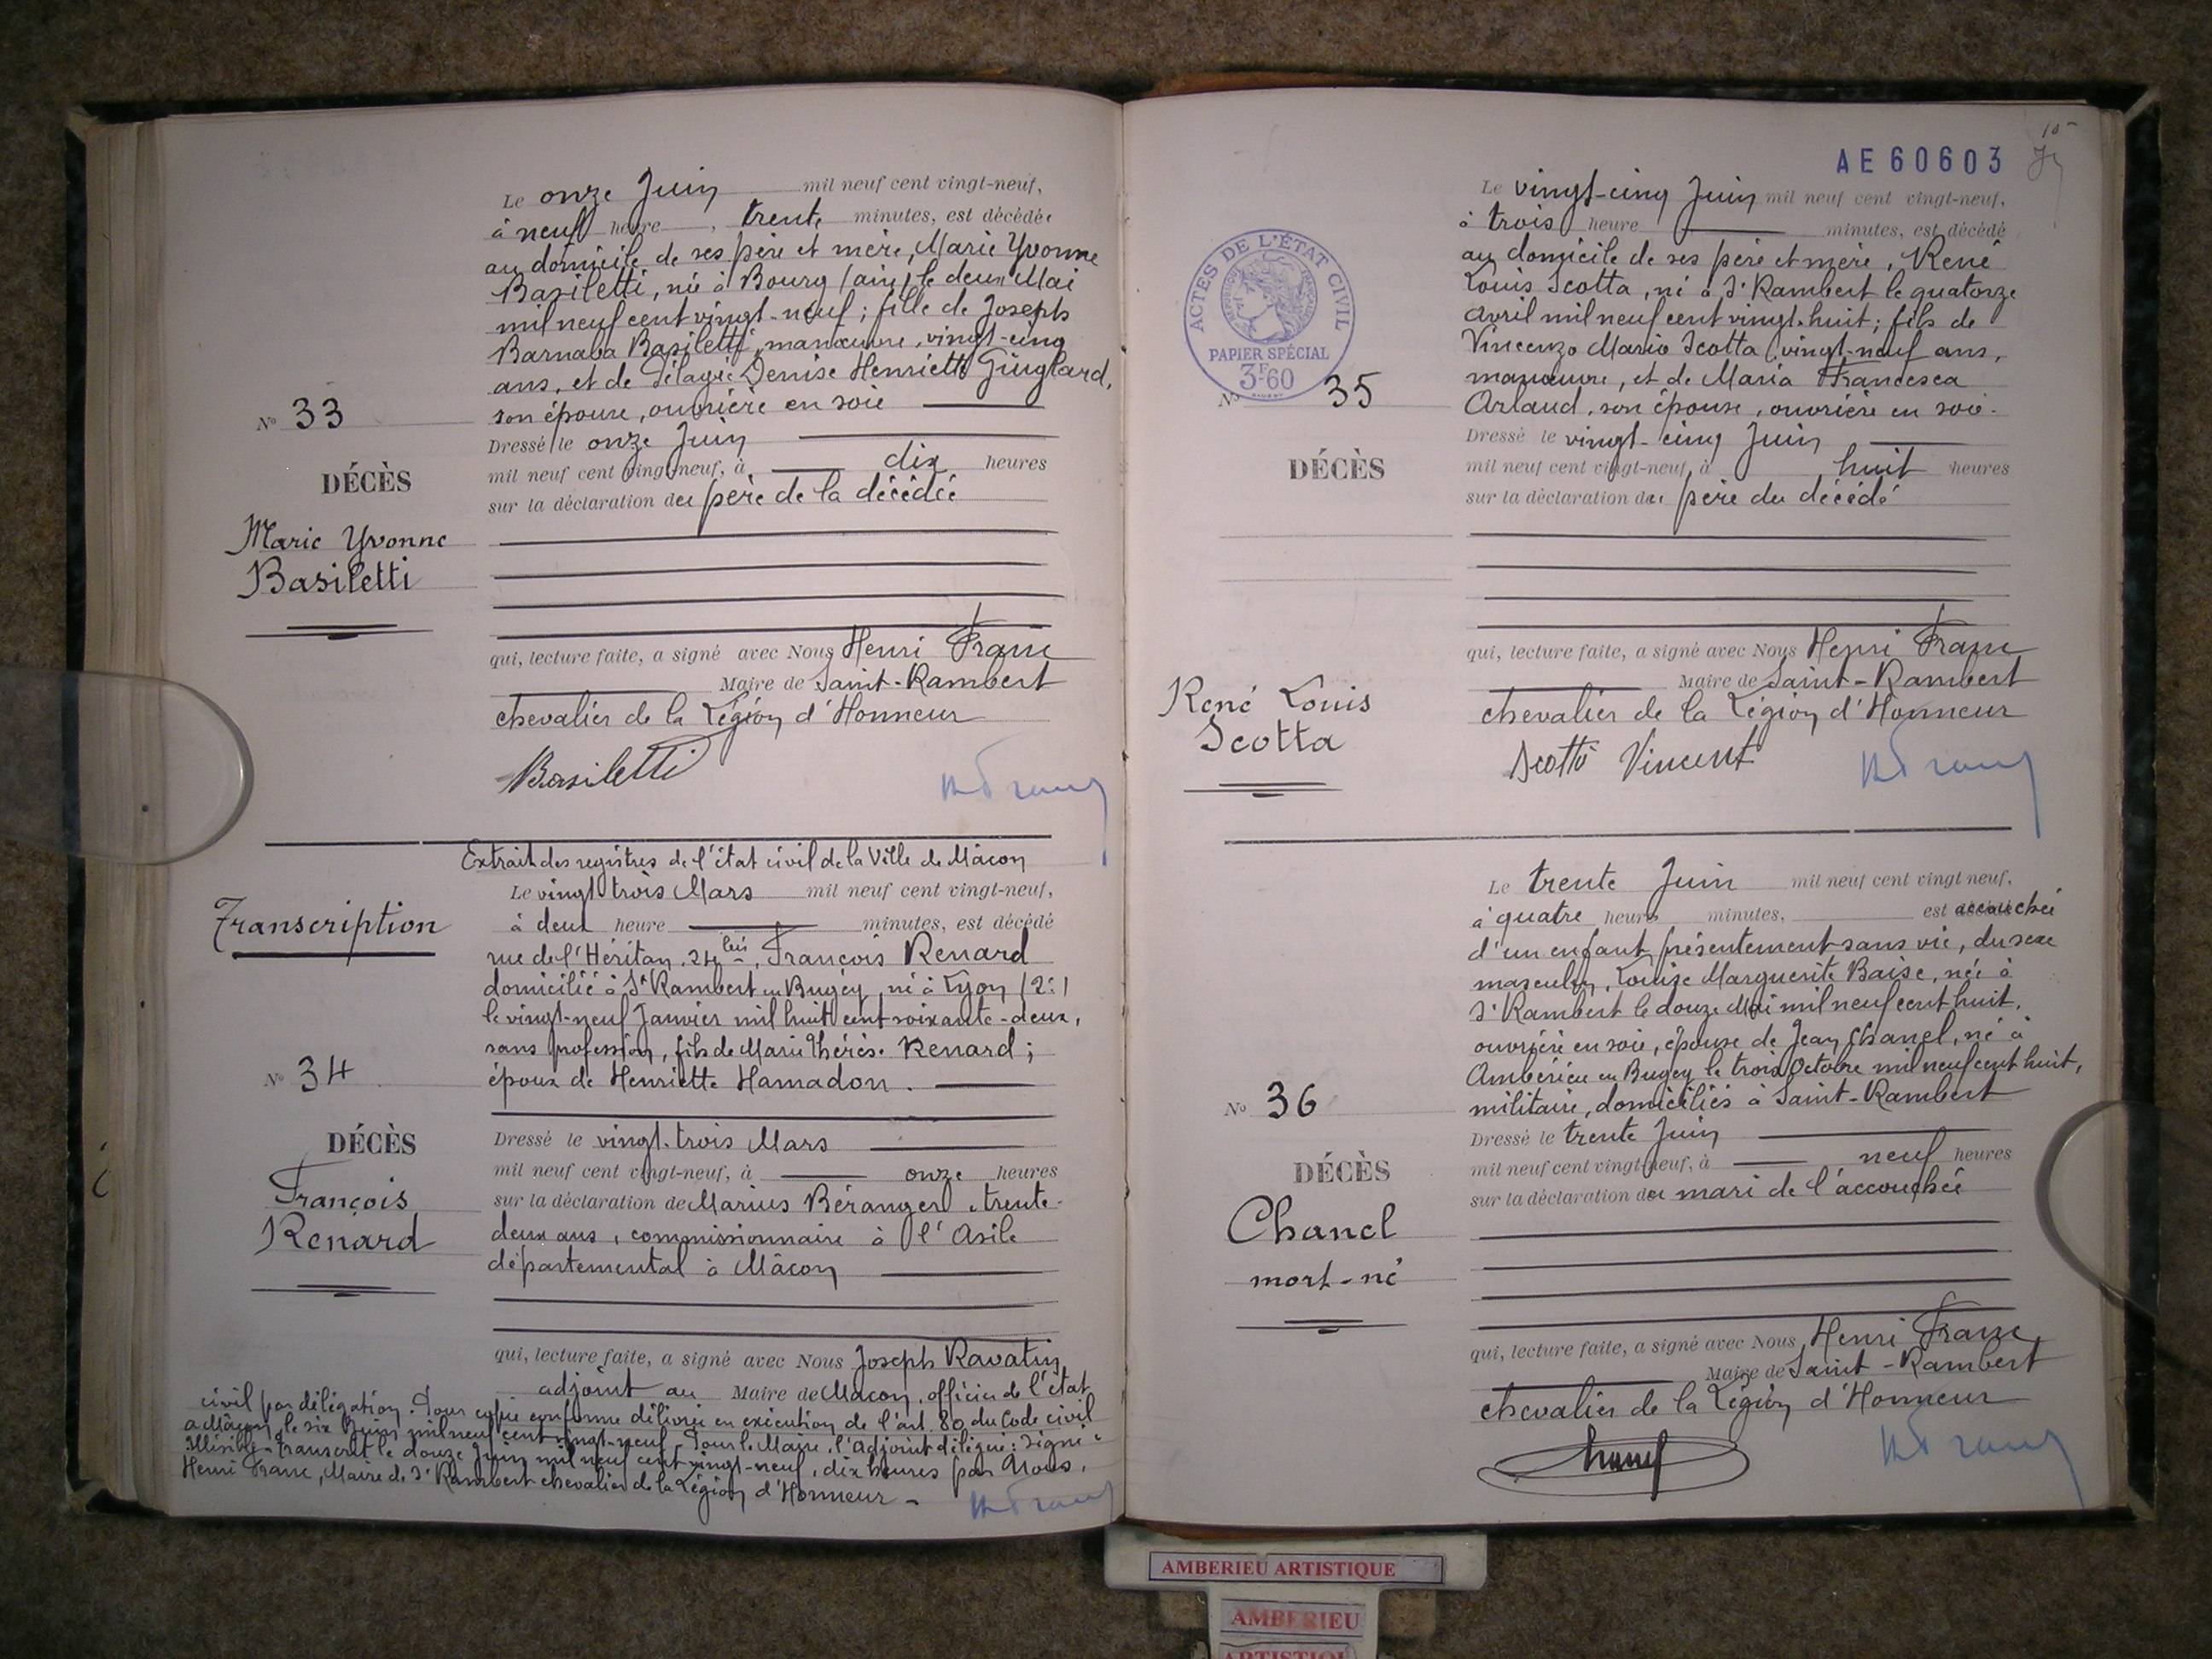 Le onze Juin mil neuf cent vingt-neuf,
à neuf heure, trente minutes, est décédée
au domicile de ses père et mère, Marie Yvonne
Basiletti, née à Bourg (ain) le deux Mai
mil neuf cent vingt-neuf; fille de Joseph
Barnaba Basiletti, manœuvre, vingt-cinq
ans, et de Pélagie Denise Henriette Guiglard,
son épouse, ouvrière en soie
Dressé le onze Juin
mil neuf cent vingt-neuf, à dix heures
sur la déclaration du père de la décédée
N° 33
DÉCÈS
Marie Yvonne
Basiletti
qui, lecture faite, a signé avec Nous Henri Franc
Maire de Saint-Rambert
chevalier de la Légion d'Honneur
Basiletti
HFranc
Extrait des registres de l'état civil de la Ville de Mâcon
Transcription
Le vingt trois Mars mil neuf cent vingt-neuf,
à deux heure minutes, est décédé
rue de l'Héritan, 24 bis, François Renard
domicilié à St Rambert en Bugey, né à Lyon (2e)
le vingt-neuf Janvier mil huit cent soixante-deux,
sans profession, fils de Marie Thérèse Renard;
époux de Henriette Hamadon.
N° 34
DÉCÈS
François
Renard
Dressé le vingt-trois Mars
mil neuf cent vingt-neuf, à onze heures
sur la déclaration de Marius Béranger, trente-
deux ans, commissionnaire à l'Asile
départemental à Mâcon
qui, lecture faite, a signé avec Nous Joseph Ravatin
adjoint au Maire de Macon, officier de l'état
civil par délégation. Pour copie conforme délivrée en exécution de l'art. 80 du Code civil
a Mâcon, le six Juin mil neuf cent vingt-neuf. Pour le Maire, l'adjoint délégué: Signé:
Illisible. Transcrit le douze Juin mil neuf cent vingt-neuf, dix heures par Nous,
Henri Franc, Maire de St Rambert chevalier de la Légion d'Honneur -
HFranc
AE60603
ACTES DE L'ÉTAT CIVIL
PAPIER SPÉCIAL
3F60
Le vingt-cinq Juin mil neuf cent vingt-neuf,
à trois heure minutes, est décédé
au domicile de ses père et mère, René
Louis Scotta, né à St Rambert le quatorze
Avril mil neuf cent vingt-huit; fils de
Vincenzo Mario Scotta, vingt-neuf ans,
manœuvre, et de Maria Francesca
Arlaud, son épouse, ouvrière en soie.
N° 35
DÉCÈS
Dressé le vingt-cinq Juin
mil neuf cent vingt-neuf, à huit heures
sur la déclaration du père du décédé
qui, lecture faite, a signé avec Nous Henri Franc
Maire de Saint-Rambert
chevalier de la Légion d'Honneur
René Louis
Scotta
Scotto Vincent
HFranc
Le trente Juin mil neuf cent vingt neuf,
à quatre heures minutes, est accouchée
d'un enfant présentement sans vie, du sexe
masculin, Louise Marguerite Baise, née à
St Rambert le douze Mai mil neuf cent huit,
ouvrière en soie, épouse de Jean Chanel, né à
Ambérieu en Bugey le trois Octobre mil neuf cent huit,
militaire, domiciliés à Saint-Rambert
N° 36
DÉCÈS
Chanel
mort-né
Dressé le trente Juin
mil neuf cent vingt-neuf, à neuf heures
sur la déclaration du mari de l'accouchée
qui, lecture faite, a signé avec Nous Henri Franc
Maire de Saint-Rambert
chevalier de la Légion d'Honneur
Chanel
HFranc
AMBERIEU ARTISTIQUE
AMBERIEU
ARTISTIQU